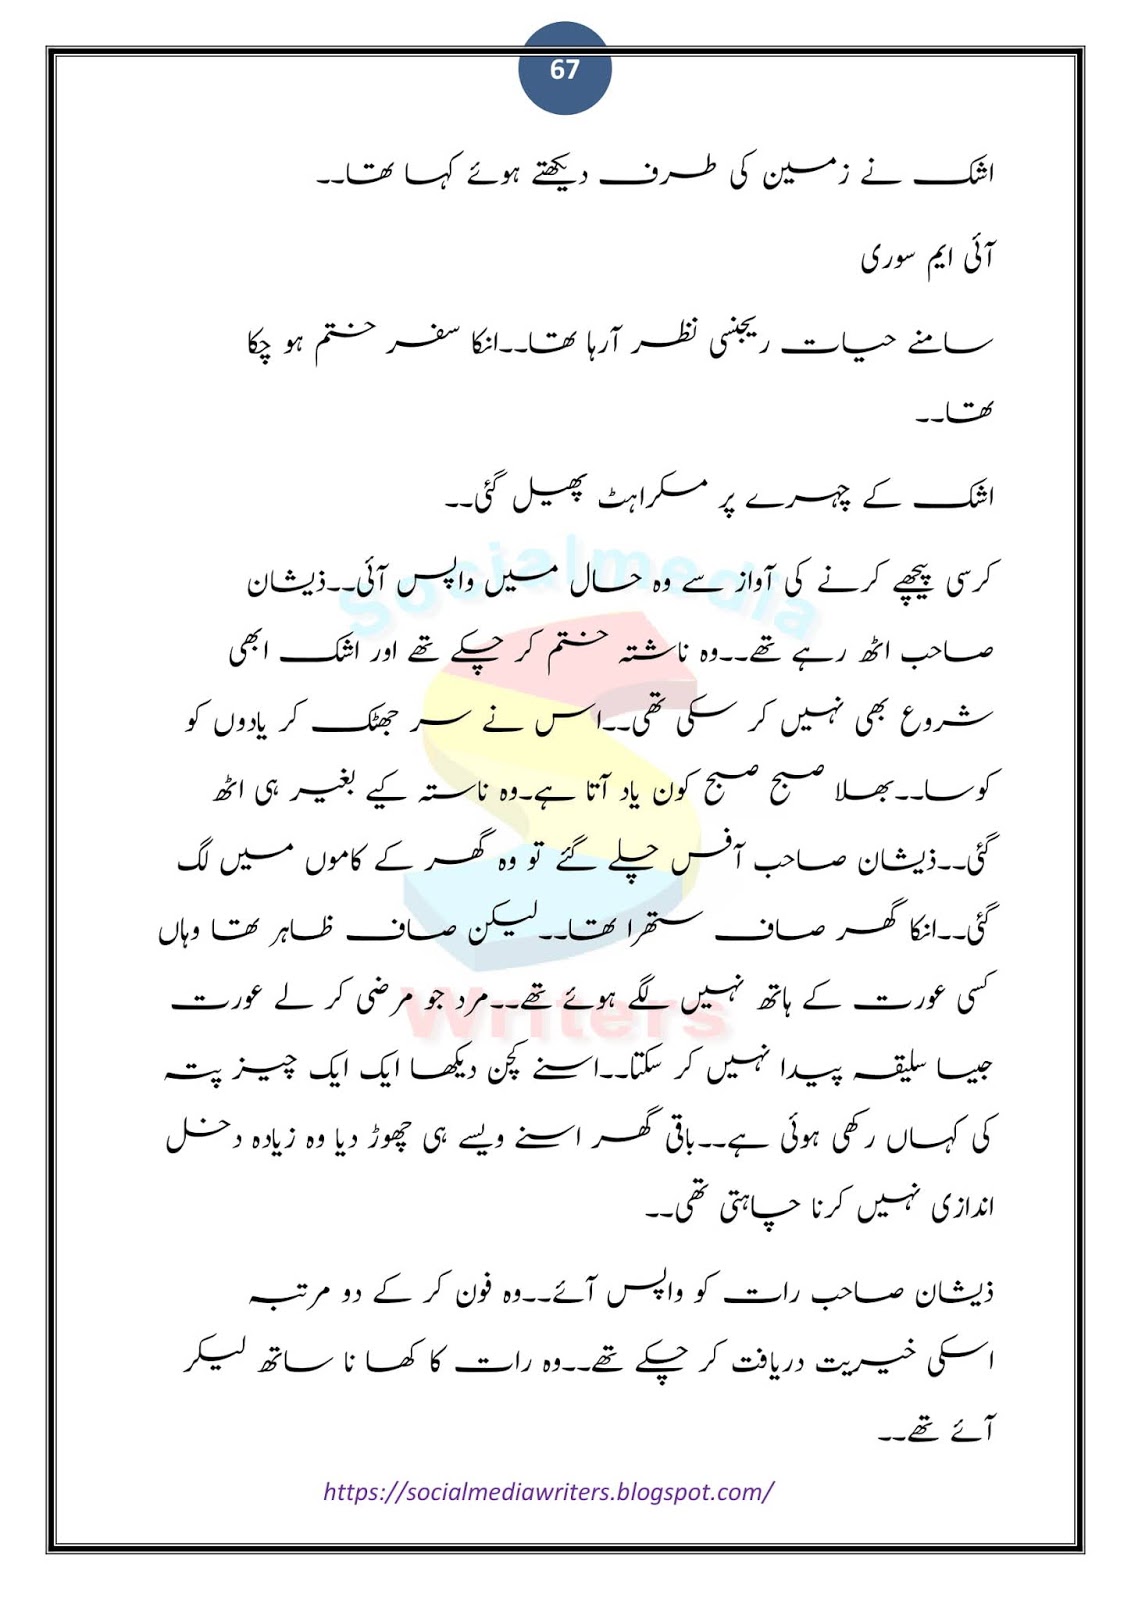 67
اشک نے زمین کی طرف دیکھتے ہوئے کہا تھا۔۔
آئی ایم سوری
سامنے حیات ریجنسی نظر آرہا تھا۔۔انکا سفر ختم ہو چکا
تھا۔۔
اشک کے چہرے پر مسکراہٹ پھیل گئی۔۔
کرسی پیچھے کرنے کی آواز سے وہ حال میں واپس آئی۔۔ذیشان
صاحب اٹھ رہے تھے۔۔وہ ناشتہ ختم کر چکے تھے اور اشک ابھی
شروع بھی نہیں کر سکی تھی۔۔اس نے سر جھٹک کر یادوں کو
کوسا۔۔بھلا صبح صبح کون یاد آتا ہے۔وہ ناستہ کیے بغیر ہی اٹھ
گئی۔۔ذیشان صاحب آفس چلے گئے تو وہ گھر کے کاموں میں لگ
گئی۔۔انکا گھر صاف ستھرا تھا۔۔لیکن صاف ظاہر تھا وہاں
کسی عورت کے ہاتھ نہیں لگے ہوئے تھے۔۔مرد جو مرضی کر لے عورت
جیسا سلیقہ پیدا نہیں کر سکتا۔۔اسنے کچن دیکھا ایک ایک چیز پتہ
کی کہاں رکھی ہوئی ہے۔۔باقی گھر اسنے ویسے ہی چھوڑ دیا وہ زیادہ دخل
اندازی نہیں کرنا چاہتی تھی۔۔
ذیشان صاحب رات کو واپس آئے۔۔وہ فون کر کے دو مرتبہ
اسکی خیریت دریافت کر چکے تھے۔۔وہ رات کا کھا نا ساتھ لیکر
آئے تھے۔۔
Socialmedia
Writers
https://socialmediawriters.blogspot.com/